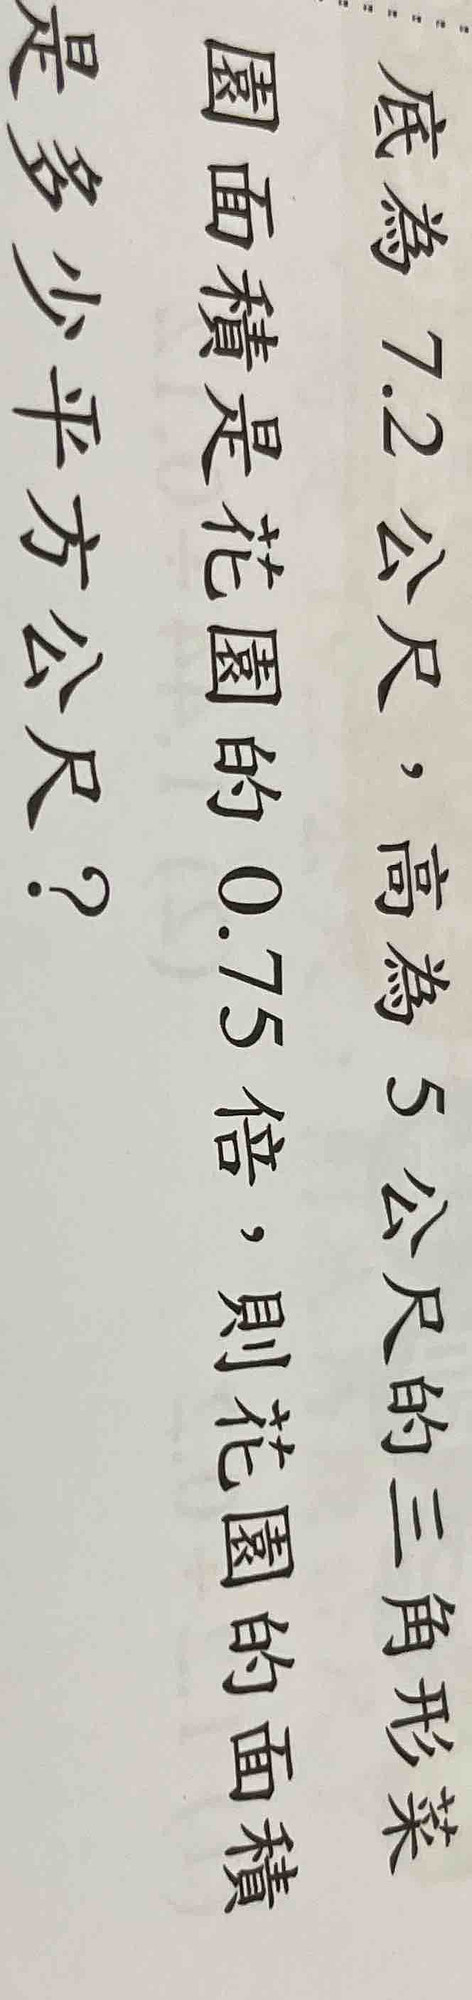 底為 7.2 公尺，高為 5 公尺的三角形菜
園面積是花園的 0.75 倍，則花園的面積
是多少平方公尺？